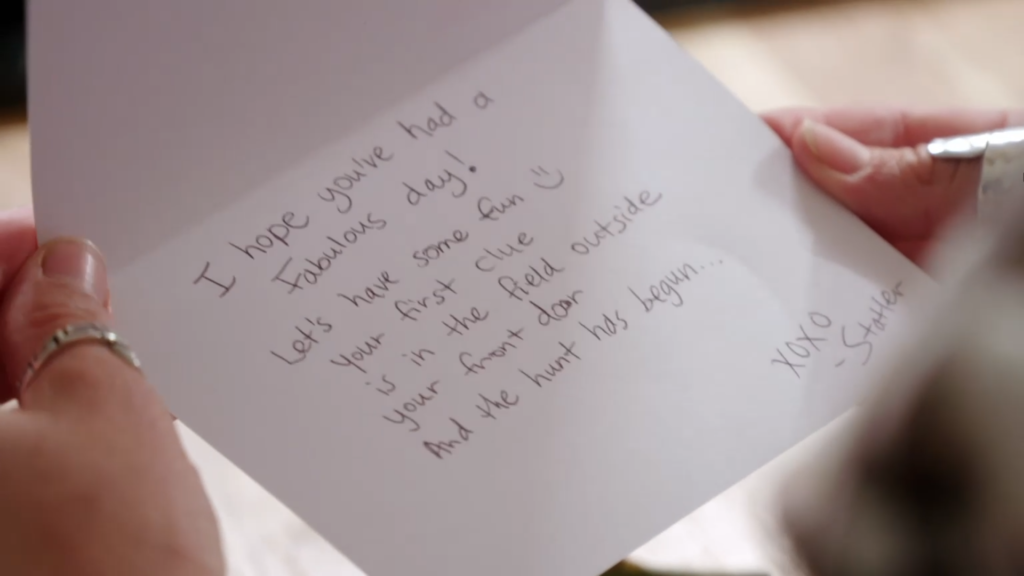 I hope you've had a
Fabulous day!
Let's have some fun :)
Your first clue
is in the field outside
your front door
And the hunt has begun...
XOXO
- Statler